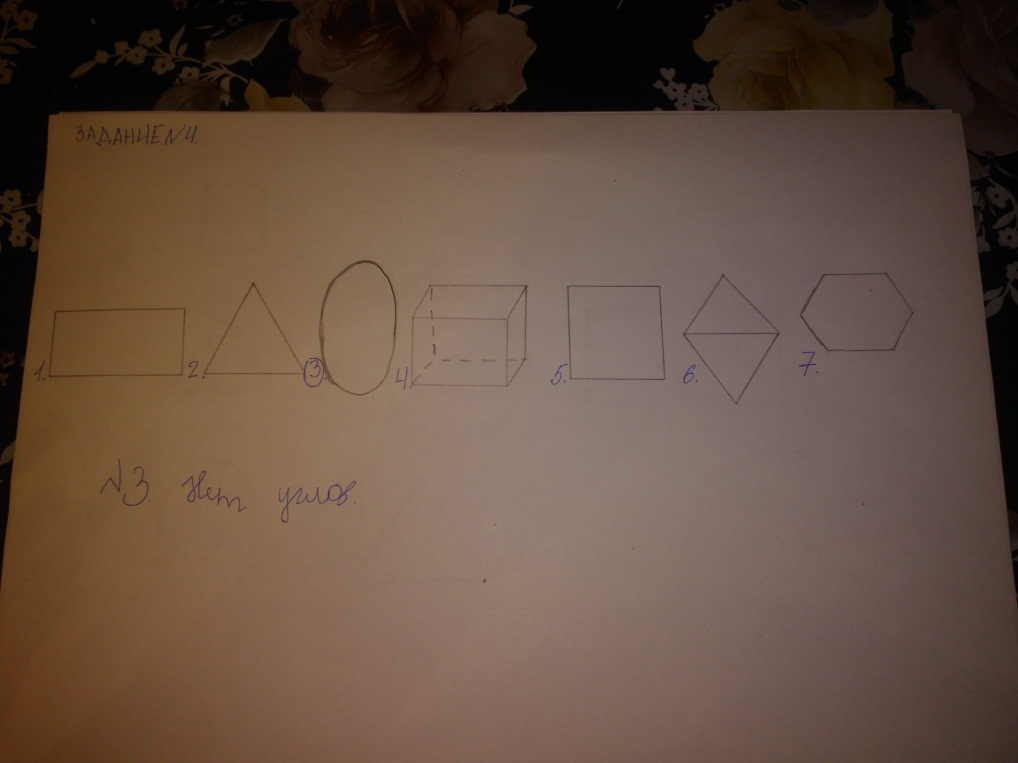 ЗАДАНИЕ N4.
1. 2. 3. 4. 5. 6. 7.
N3. Нет углов.